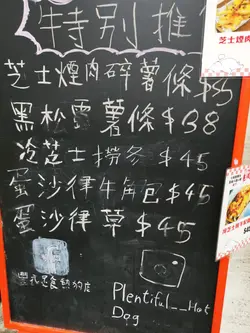 特別推
芝士煙肉碎薯條 $
黑松露薯條 $38
冷芝士撈冬 $45
蛋沙律牛角包 $45
蛋沙律草 $45
熱狗店
Plentiful__Hot
Dog